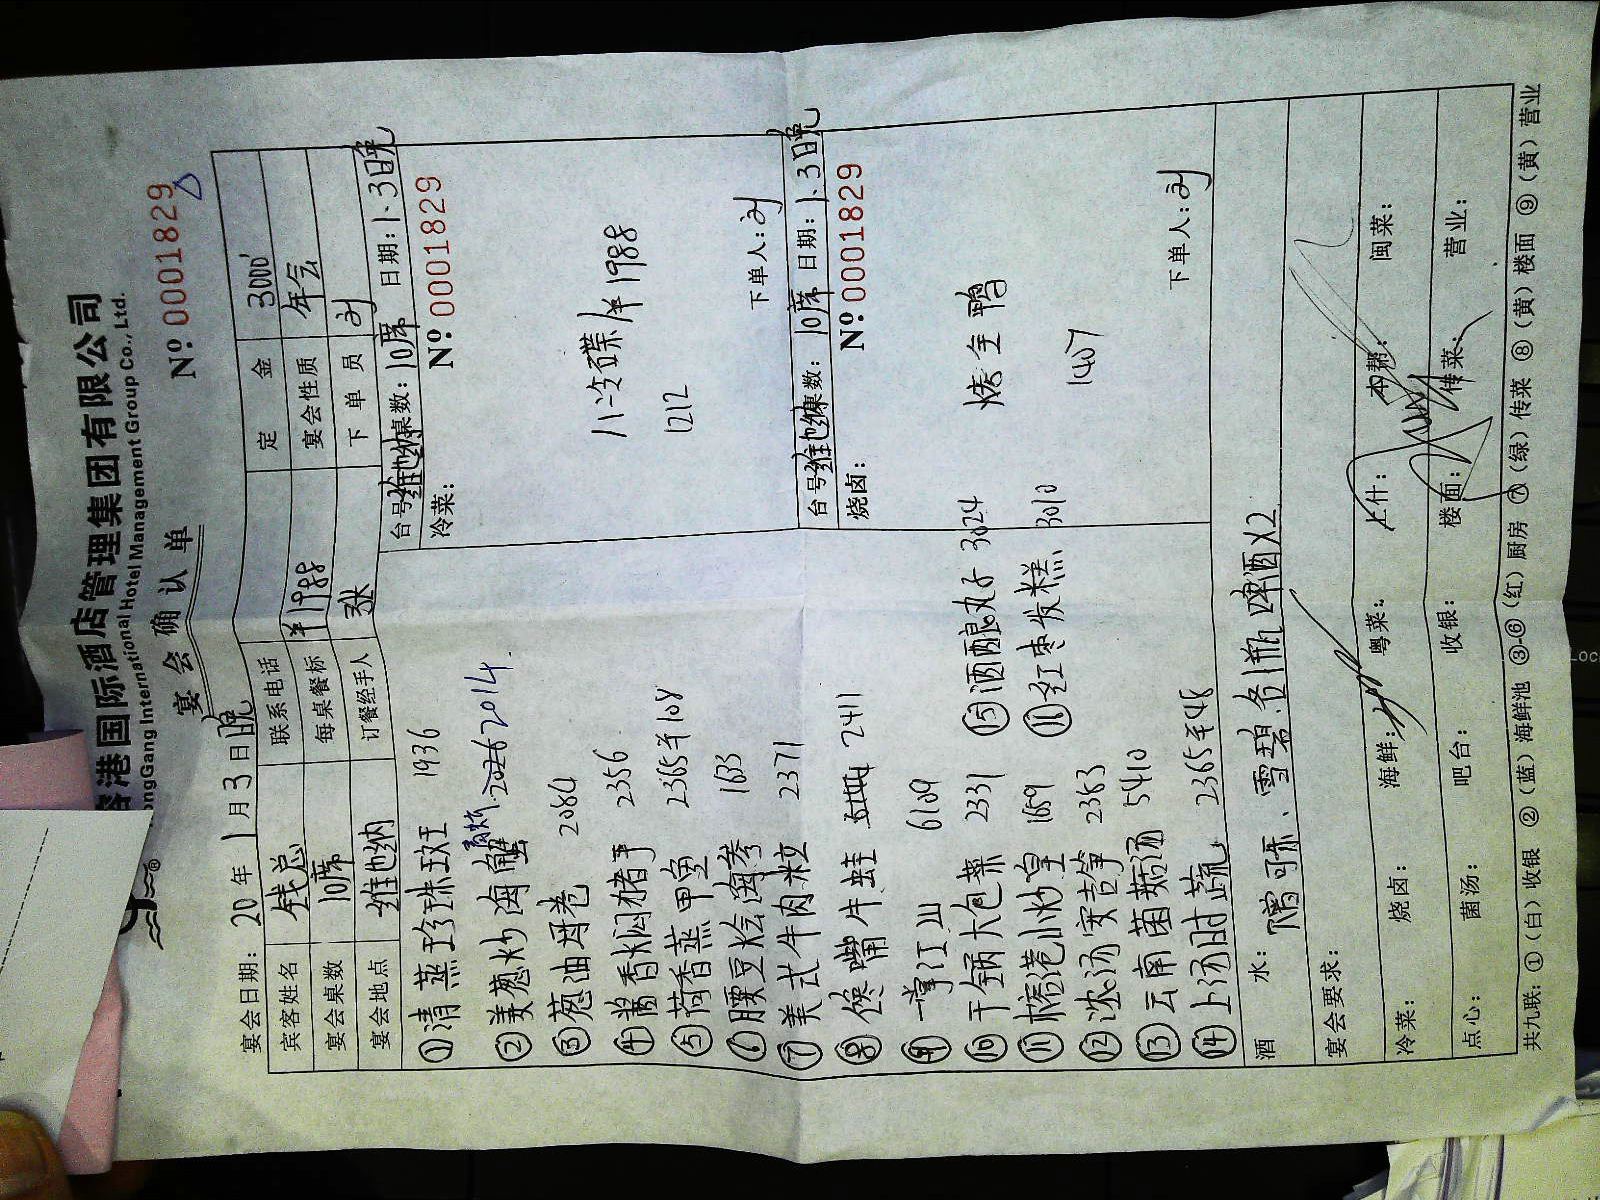 港国际酒店管理集团有限公司
ongGang International Hotel Management Group Co., Ltd.
宴会确认单
Nº 0001829
宴会日期: 20 年 1 月 3 日 晚
宾客姓名 钱总 联系电话 定金 3000
宴会桌数 10席 每桌餐标 ¥1988 宴会性质 年会
宴会地点 维也纳 订餐经手人 张 下单员 刘
①清蒸珍珠斑 1936
②姜葱炒海蟹 2014
③葱油母卷 2084
④酱香焖猪手 2356
⑤荷香蒸甲鱼 2365 半108
⑥腰豆烩海参 1633
⑦美式牛肉粒 2371
⑧馋嘴牛蛙 2411
⑨一掌江山 6109
⑩干锅大包菜 2331
⑪榕港小炒皇 1659
⑫浓汤安吉笋 2353
⑬云南菌菇汤 5410
⑭上汤时蔬 2365 半48
⑮酒酿丸子 3024
⑯红枣发糕 3010
台号: 维也纳 桌数: 10席 日期: 1.3日晚
冷菜: Nº 0001829
八冷碟/半1988
1212
下单人: 刘
台号 维也纳 桌数: 10席 日期: 1.3日晚
烧卤: Nº 0001829
烤全鸭
1407
下单人: 刘
酒水: 赠可乐、雪碧各1瓶 啤酒X2
宴会要求:
冷菜: 烧卤: 海鲜: 粤菜: 上什: 本帮: 闽菜:
点心: 菌汤: 吧台: 收银: 楼面: 传菜: 营业:
共九联: ①(白)收银 ②(蓝)海鲜池 ③-⑥(红)厨房 ⑦(绿)传菜 ⑧(黄)楼面 ⑨(黄)营业